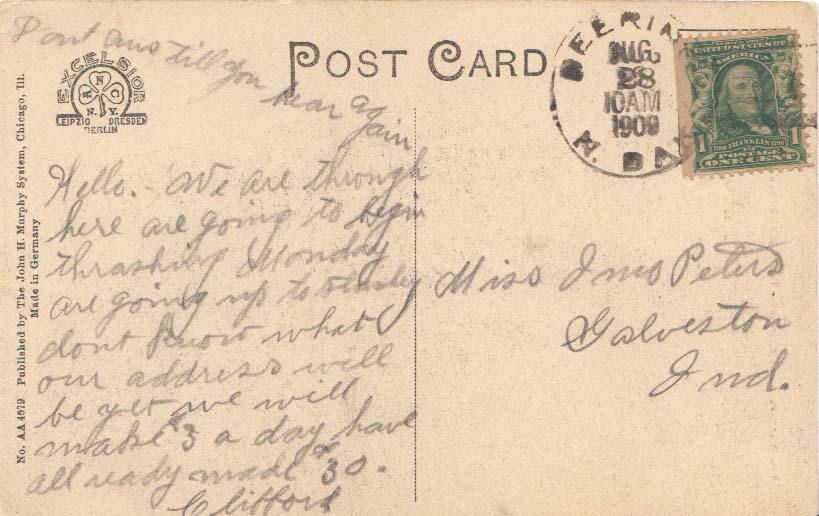 Dont ans till you
hear again
POST CARD
EXCELSIOR
R N C
N.Y.
LEIPZIG DRESDEN
BERLIN
No. AA 4579 Published by The John H. Murphy System, Chicago, Ill.
Made in Germany
AUG.
28
10AM
1909
N. DAK
UNITED STATES OF
AMERICA
1 1
1706 FRANKLIN 1790
POSTAGE
ONE CENT
Hello. - We are through
here are going to begin
thrashing Monday
are going up to
dont know what
our address will
be yet we will
make $3 a day have
all ready made $30.
Clifford
Miss Imo Peters
Galveston
Ind.